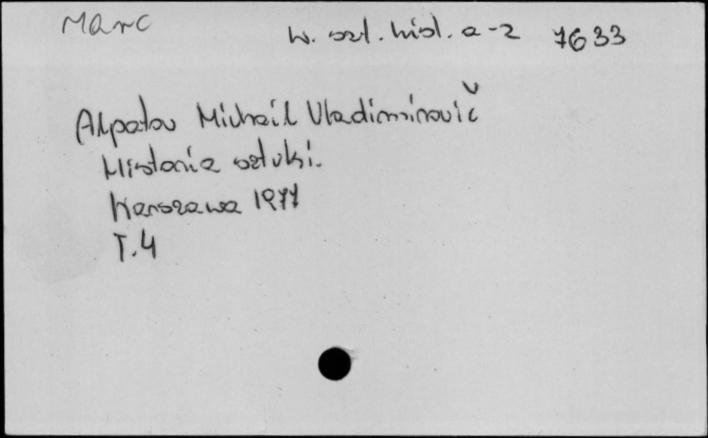 Marc
W. szt. hist. a-z 7633
Alpatov Michail Vladimirovič
Historia sztuki.
Warszawa 1977
T. 4